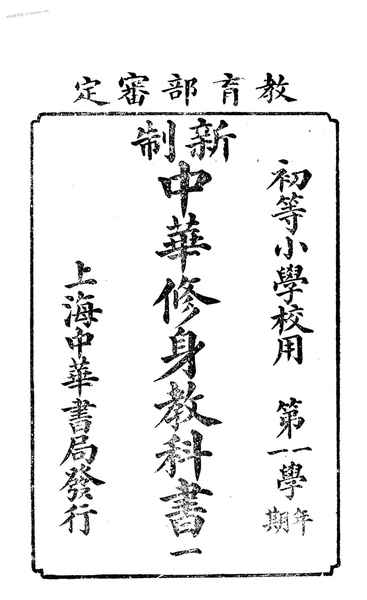 教育部審定
初等小學校用 第一學年 第一學期
新制
中華修身教科書 一
上海中華書局發行